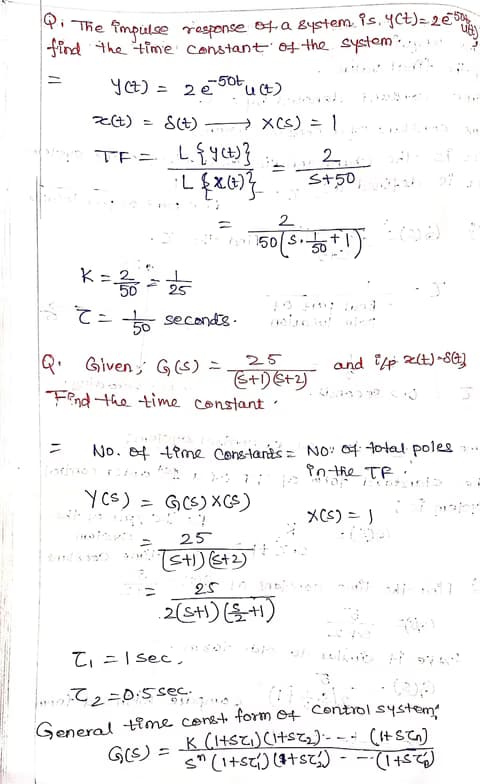 Q. The impulse response of a system is, y(t) = 2e^-50t u(t),
find the time constant of the system.
= y(t) = 2e^-50t u(t)
x(t) = δ(t) ⟶ X(s) = 1
TF = L{y(t)} / L{x(t)} = 2 / s+50
= 2 / 50(s.1/50+1)
K = 2/50 = 1/25
τ = 1/50 seconds.
Q. Given; G(s) = 25 / (s+1)(s+2) and i/p x(t)=δ(t)
Find the time constant.
= No. of time constants = No: of total poles
in the TF.
Y(s) = G(s) X(s) X(s) = 1
= 25 / (s+1)(s+2)
= 25 / 2(s+1)(s/2+1)
τ1 = 1 sec.
τ2 = 0.5 sec.
General time const form of control system;
G(s) = K(1+sτ1)(1+sτ2)---(1+sτn) / s^n(1+sτ1')(1+sτ2')--(1+sτp')